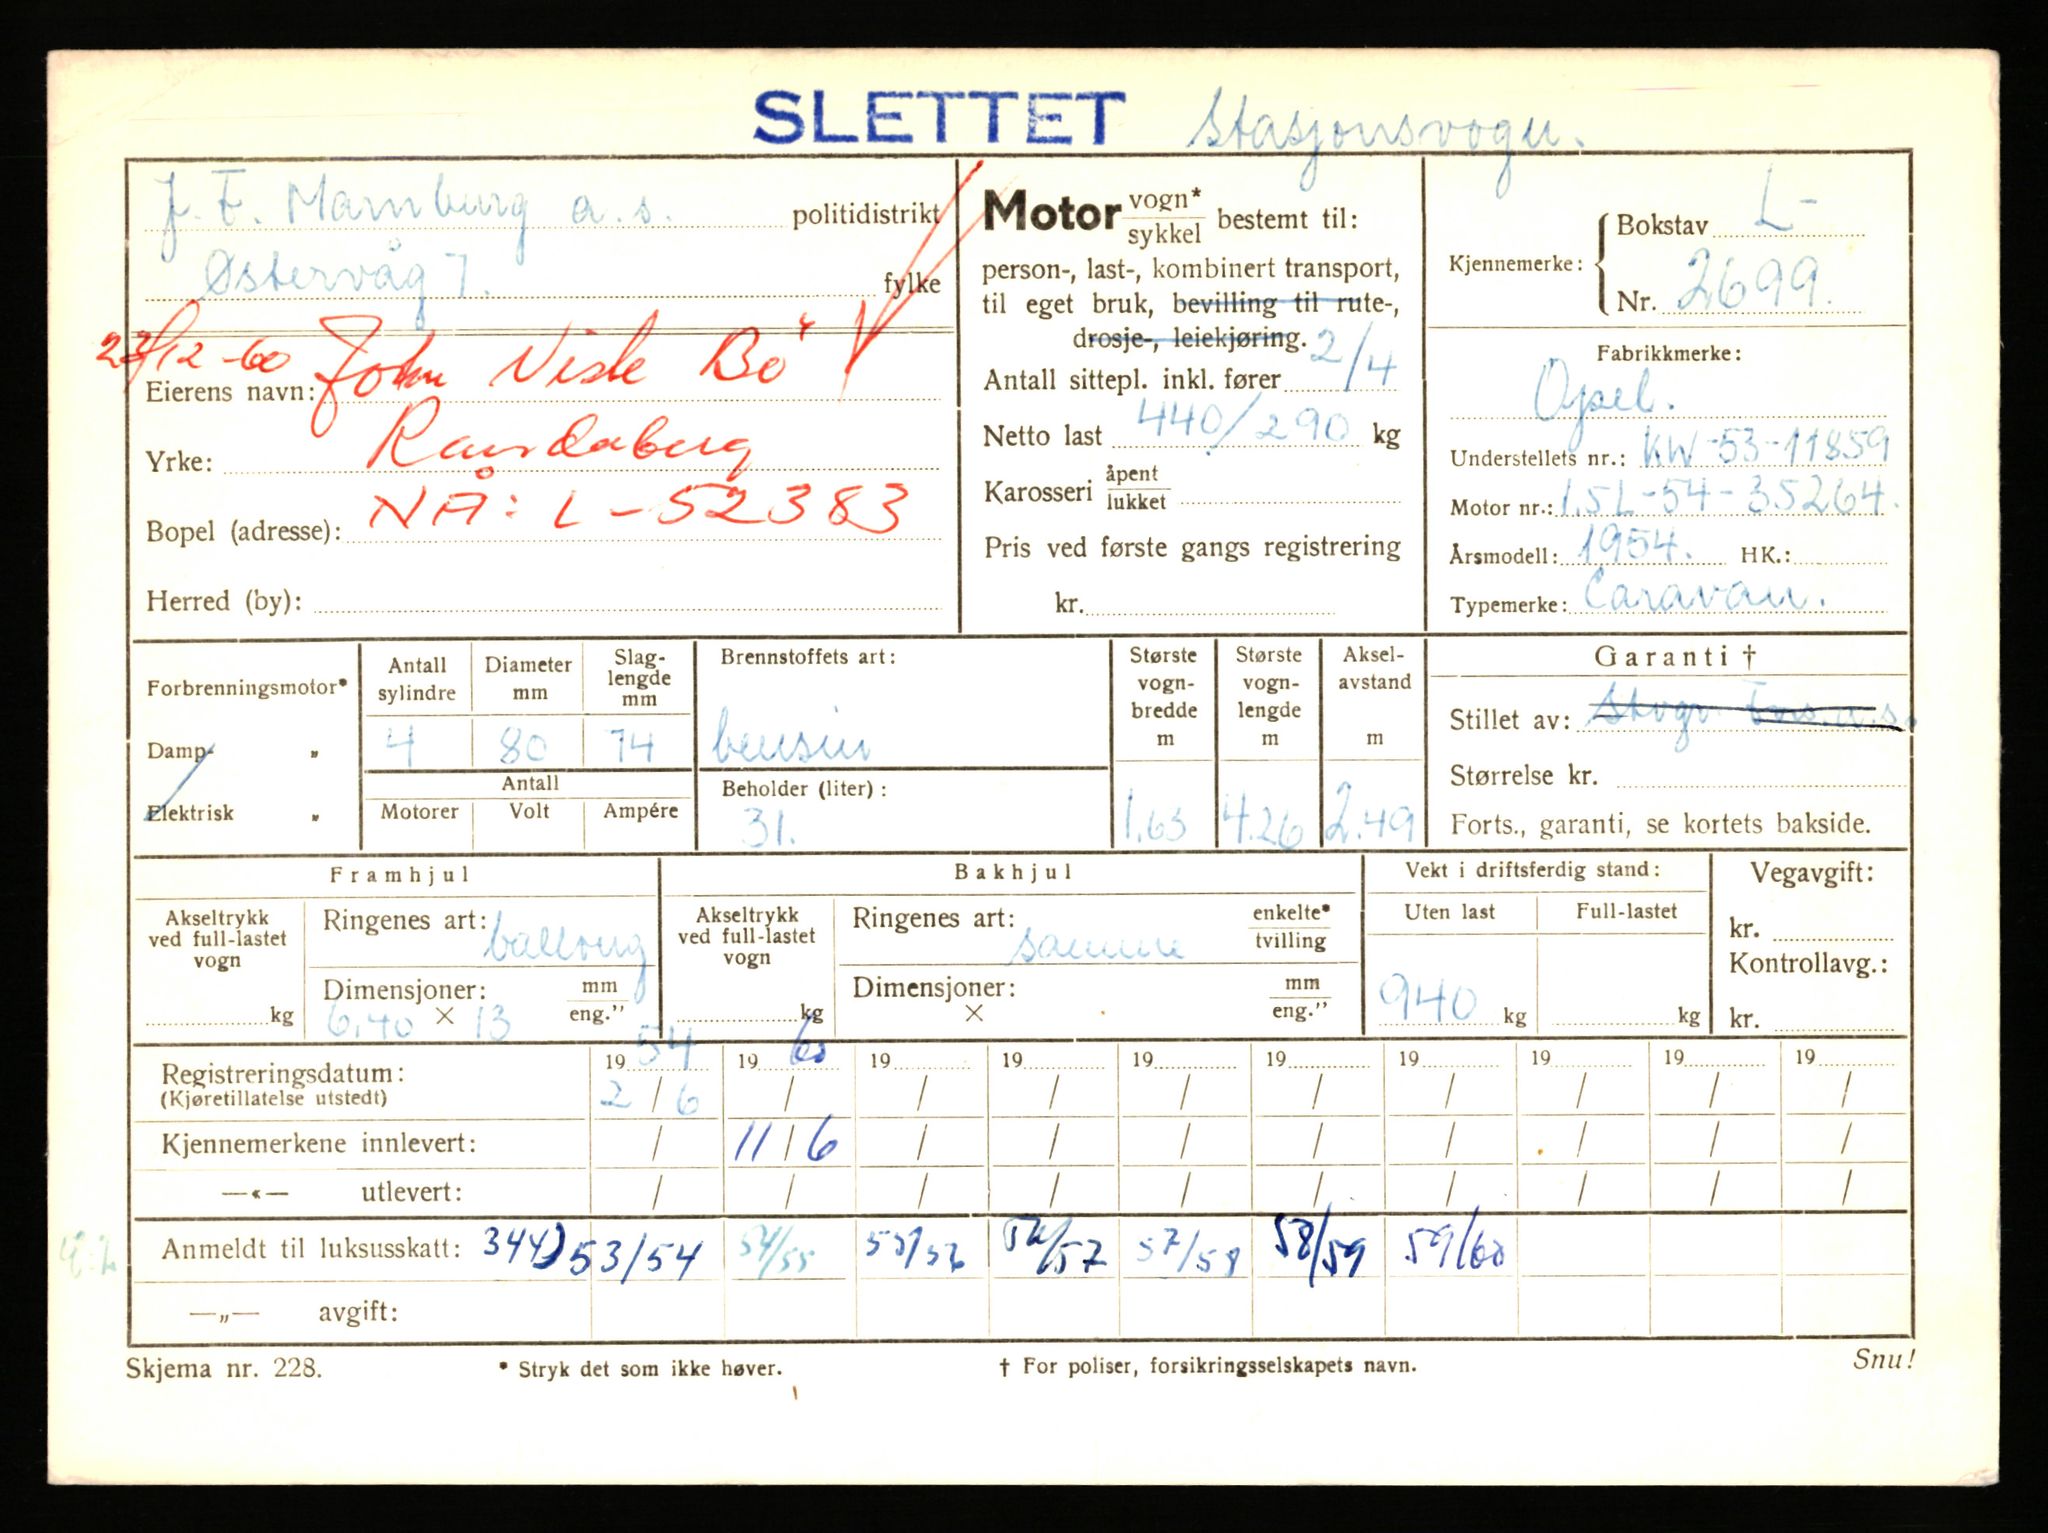 SLETTET Stasjonsvogn.
J. F. Mamburg a.s. politidistrikt
Østervåg 7. fylke
23/12-60 John Viste Bø
Eierens navn:
Randaberg
Yrke:
NÅ: L-52383
Bopel (adresse):
Herred (by):
Motor vogn*/sykkel bestemt til:
person-, last-, kombinert transport,
til eget bruk, bevilling til rute-,
drosje-, leiekjøring.
Antall sittepl. inkl. fører 2/4
Netto last 440/290 kg
Karosseri åpent/lukket
Pris ved første gangs registrering
kr.
Kjennemerke: Bokstav L-
Nr. 2699.
Fabrikkmerke:
Opel.
Understellets nr.: KW-53-11859
Motor nr.: 1.5L-54-35264.
Årsmodell: 1954. HK.:
Typemerke: Caravan.
Forbrenningsmotor*
Damp- „
Elektrisk „
Antall sylindre 4
Diameter mm 80
Slaglengde mm 74
Antall
Motorer Volt Ampére
Brennstoffets art:
bensin
Beholder (liter):
31.
Største vognbredde m 1.63
Største vognlengde m 4.26
Akselavstand m 2.49
Garanti †
Stillet av: Stvgr. Fors. a.s.
Størrelse kr.
Forts., garanti, se kortets bakside.
Framhjul
Akseltrykk ved full-lastet vogn
kg
Ringenes art: ballong
Dimensjoner: mm/eng."
6.40 × 13
Bakhjul
Akseltrykk ved full-lastet vogn
kg
Ringenes art: samme enkelte*/tvilling
Dimensjoner: mm/eng."
×
Vekt i driftsferdig stand:
Uten last Full-lastet
940 kg kg
Vegavgift:
kr.
Kontrollavg.:
kr.
Registreringsdatum: 19 54 19 60 19 19 19 19 19 19 19 19
(Kjøretillatelse utstedt) 2/6 / / / / / / / / /
Kjennemerkene innlevert: / 11/6 / / / / / / / /
—«— utlevert: / / / / / / / / / /
Anmeldt til luksusskatt: 344) 53/54 54/55 55/56 56/57 57/58 58/59 59/60
—„— avgift:
Skjema nr. 228. * Stryk det som ikke høver. † For poliser, forsikringsselskapets navn. Snu!